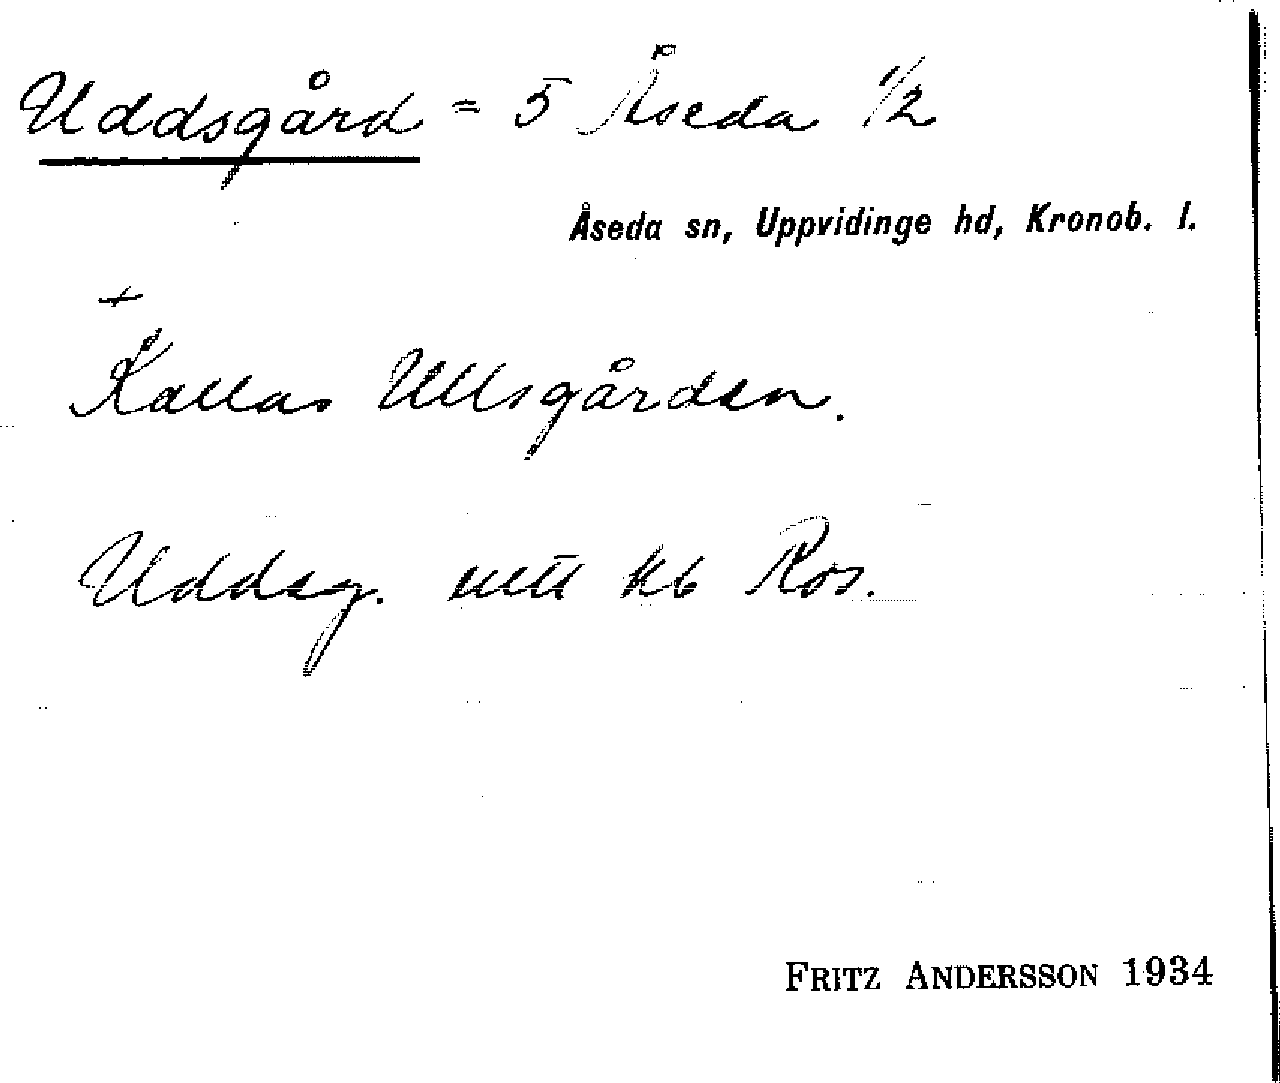 Uddsgård = 5 Åseda 1/2
Åseda sn, Uppvidinge hd, Kronob. l.
+
Kallas Ullsgården.
Uddsg. utt kb Ros.
FRITZ ANDERSSON 1934